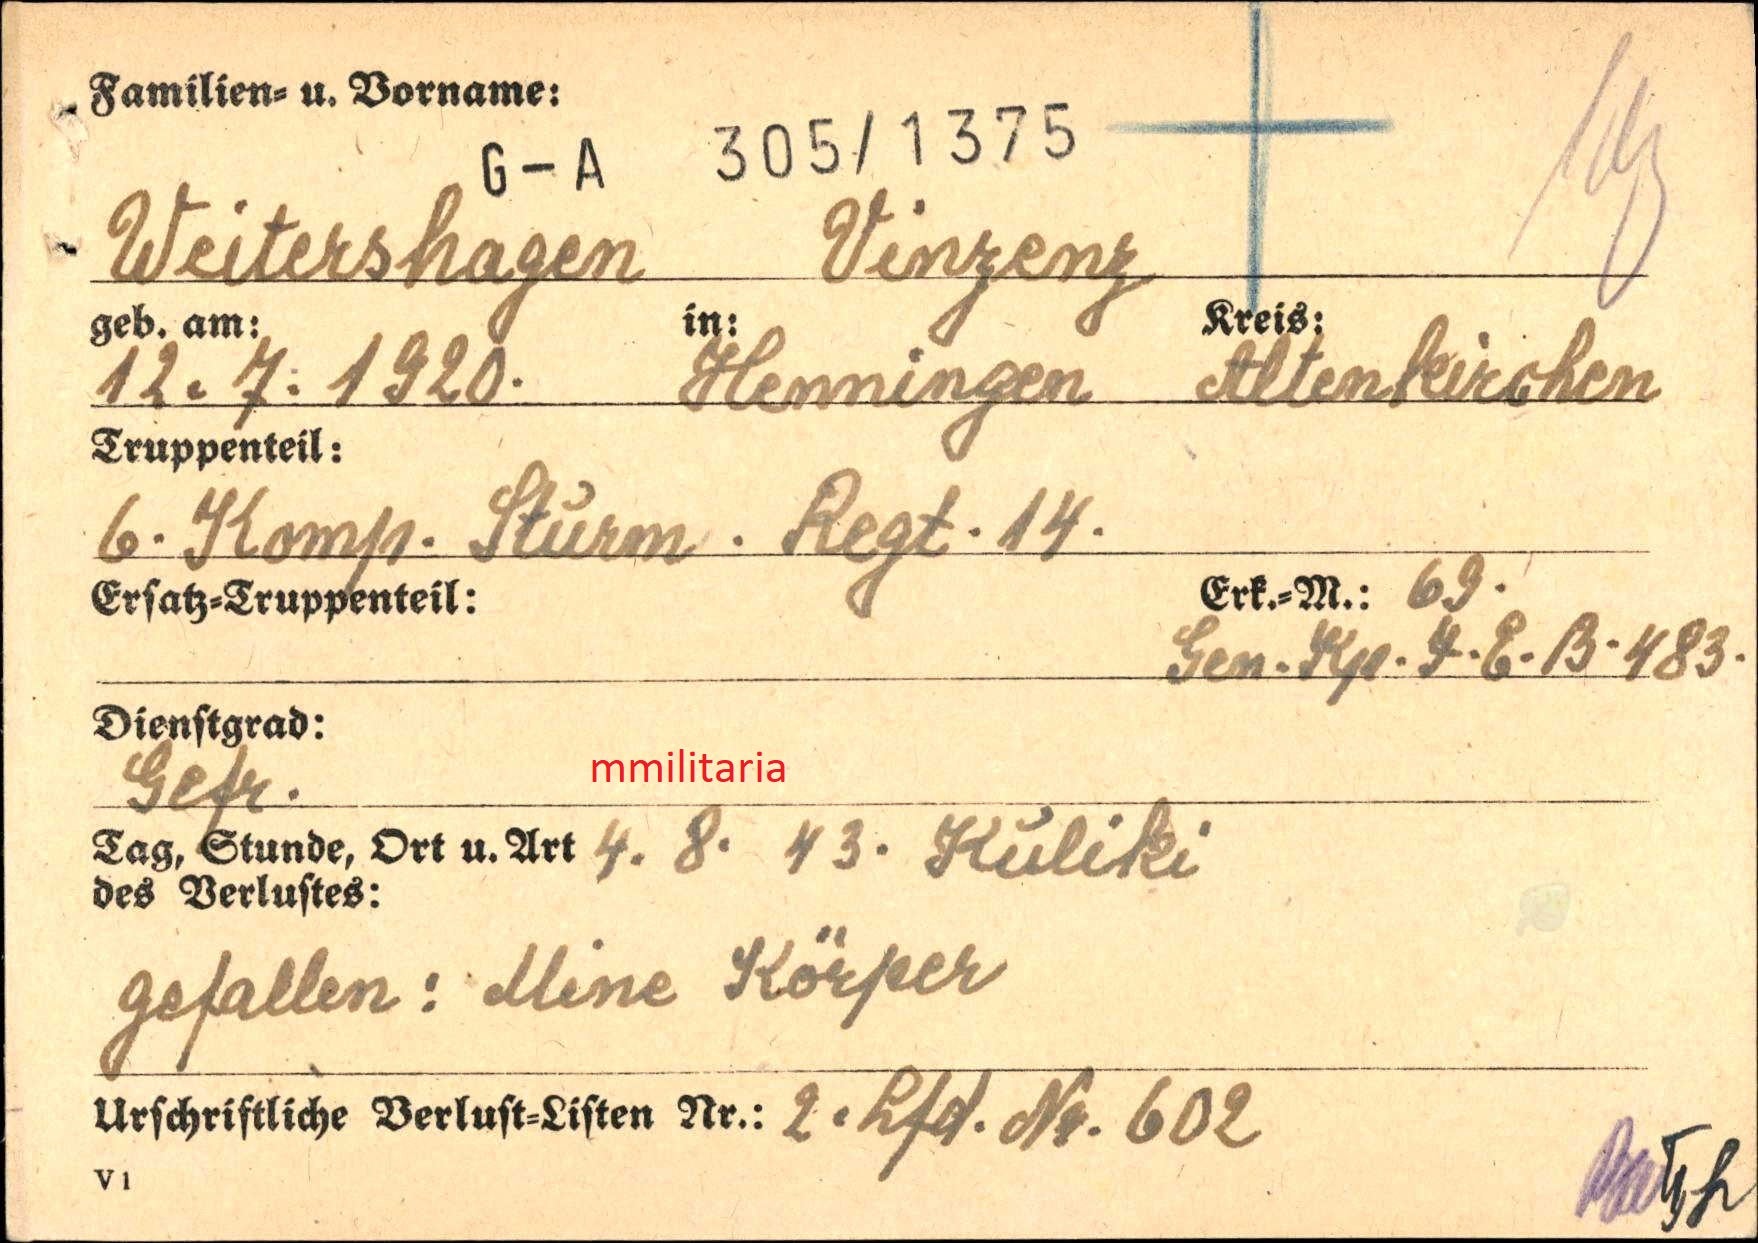 Familien- u. Vorname:
G-A 305/1375
Weitershagen Vinzenz
geb. am: in: Kreis:
12. 7. 1920. Henningen Altenkirchen
Truppenteil:
6. Komp. Sturm. Regt. 14.
Ersatz-Truppenteil: Erk.-M.: 69.
Gen. Kp. I. E. B. 483.
Dienstgrad:
Gefr.
mmilitaria
Tag, Stunde, Ort u. Art 4. 8. 43. Kuliki
des Verlustes:
gefallen: Mine Körper
Urschriftliche Verlust-Listen Nr.: 2. lfd. Nr. 602
V 1